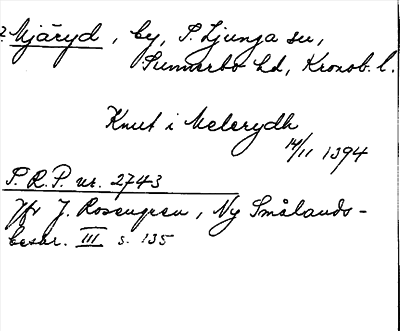 2. Mjäryd, by, S. Ljunga sn,
Sunnerbo hd, Kronob. l.
Knut i Melerydh
14/11 1394
P.R.P. nr. 2743
Jfr J. Rosengren, Ny Smålands-
beskr. III s. 135